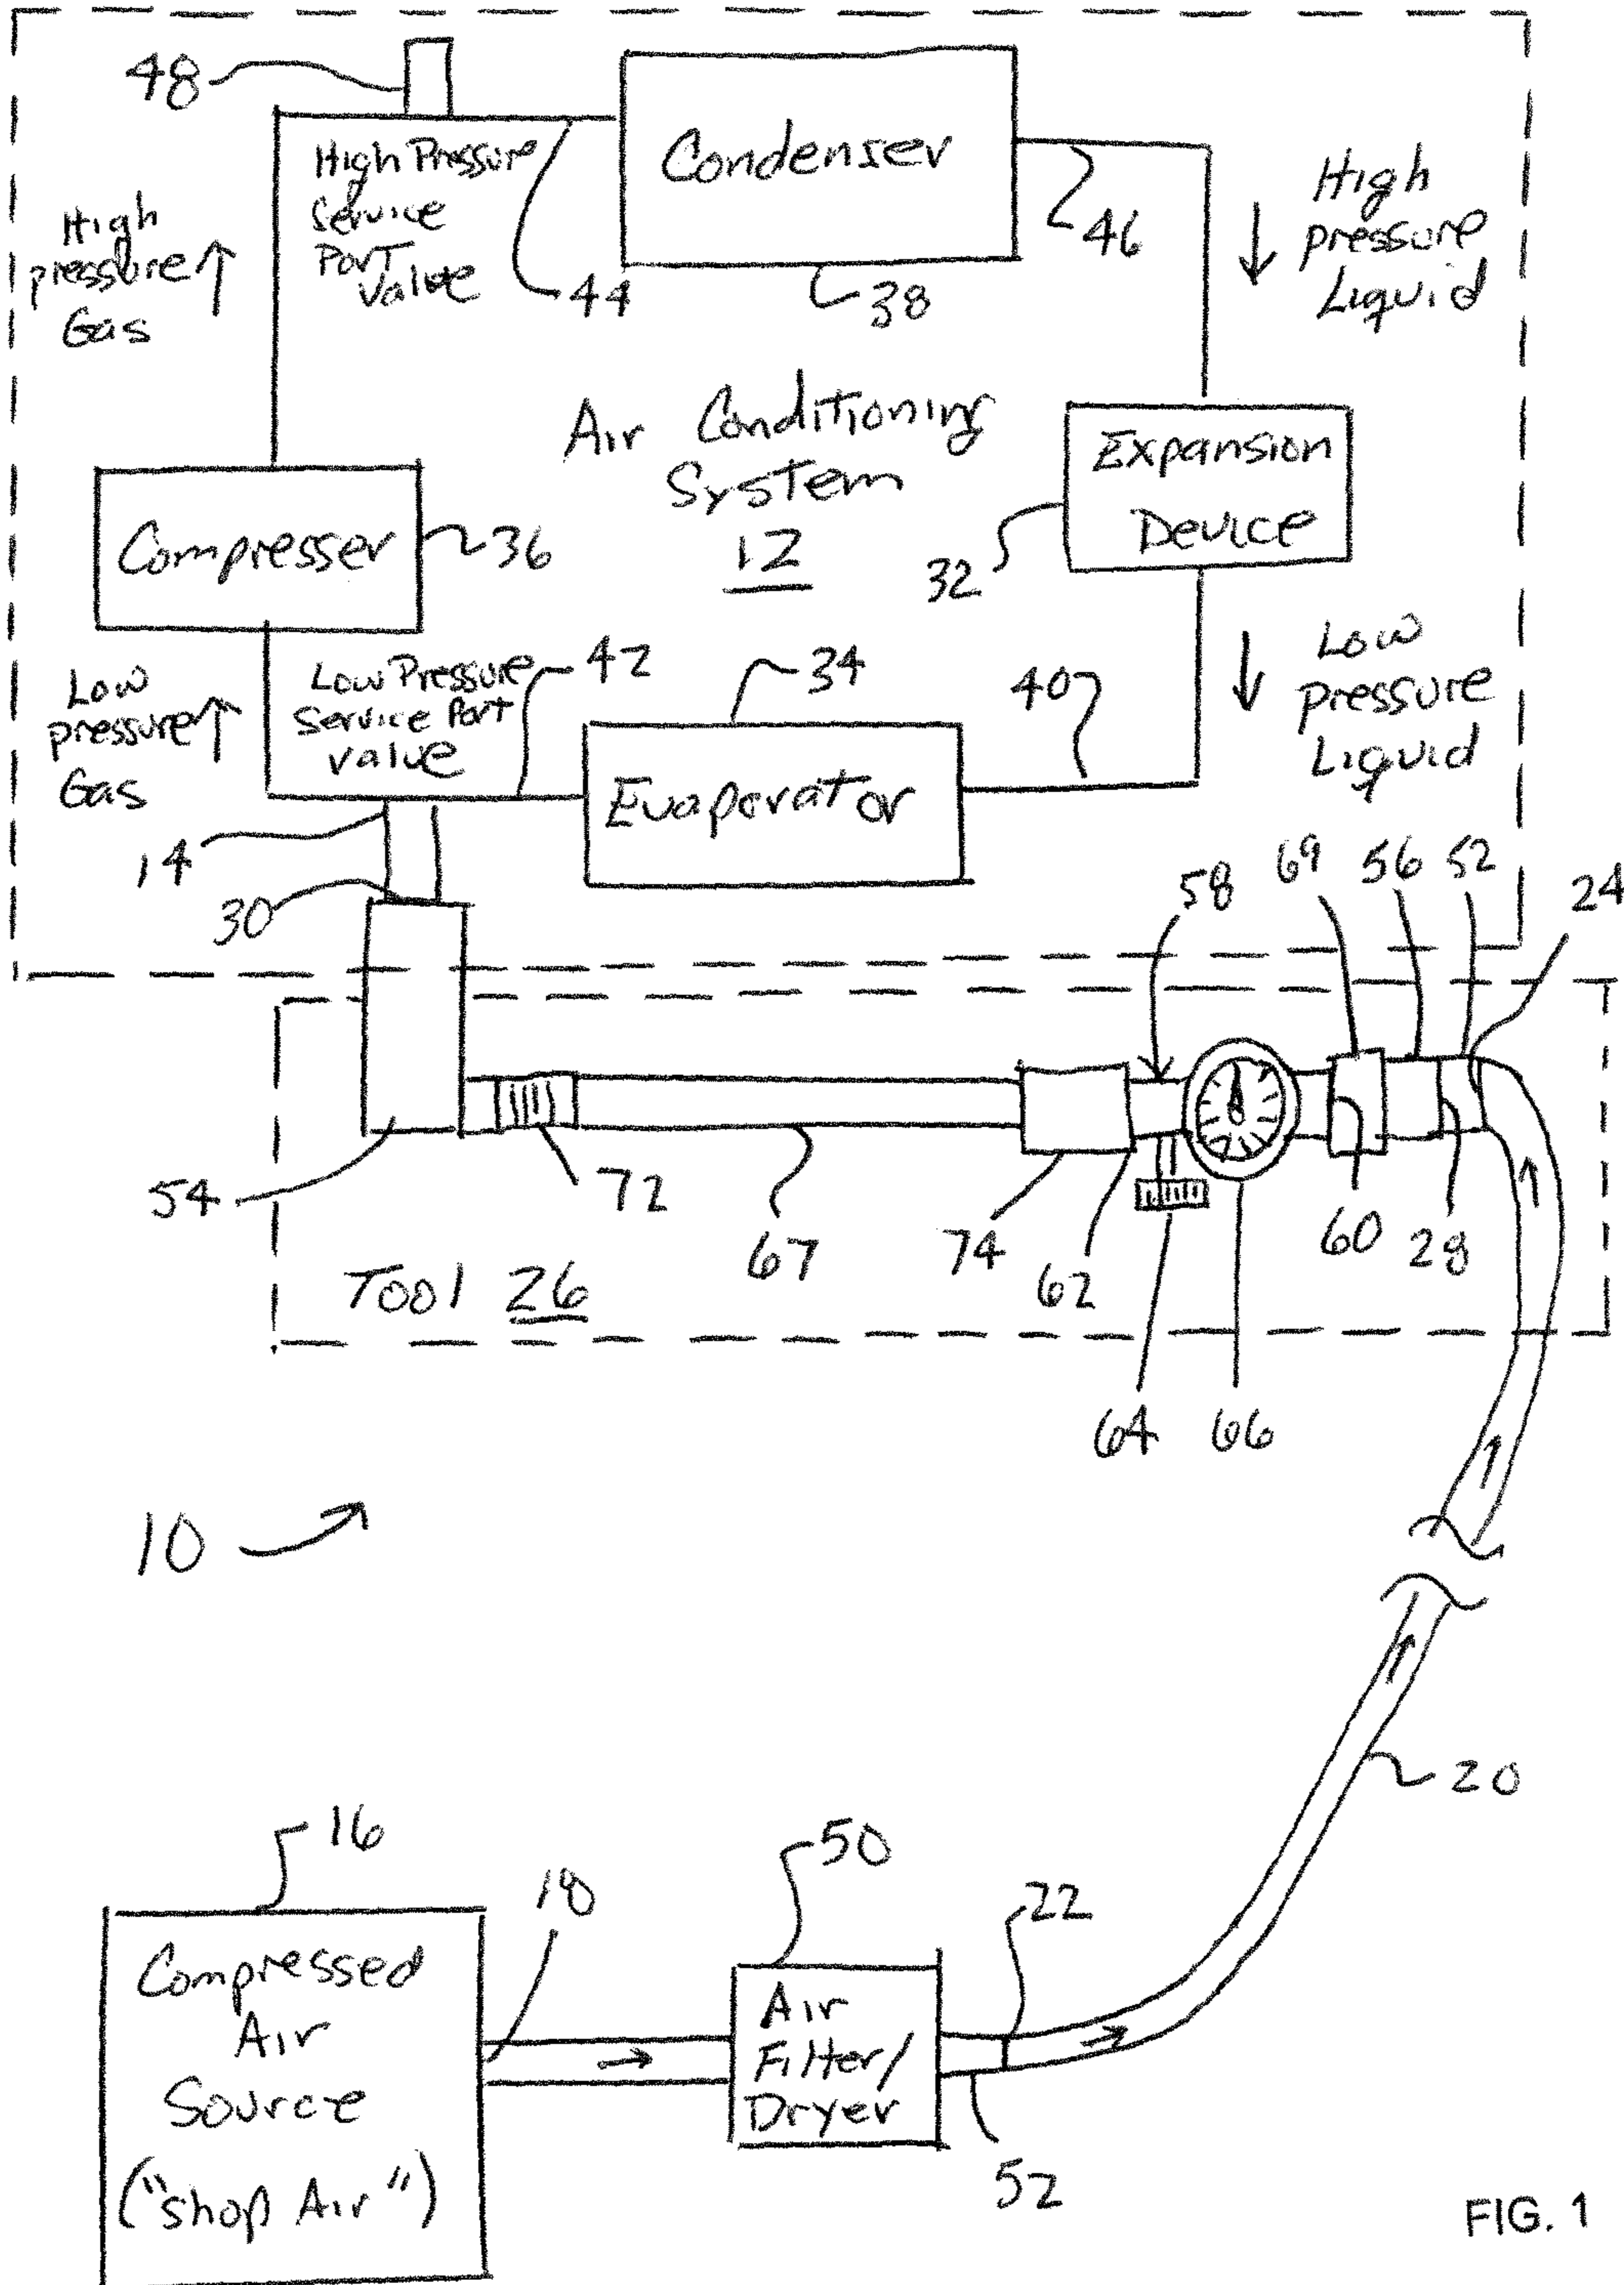 48
High Pressure
Service
Port
Valve
High
pressure
Gas
44
Condenser
38
46
High
pressure
Liquid
Air Conditioning
System
12
Expansion
Device
32
Compresser
36
Low
pressure
Gas
Low Pressure
Service Port
Valve
42
34
40
Low
Pressure
Liquid
Evaporator
14
30
58
69
56
52
24
54
72
67
74
62
60
28
Tool 26
64
66
10
20
16
18
50
22
Compressed
Air
Source
("shop Air")
Air
Filter/
Dryer
52
FIG. 1